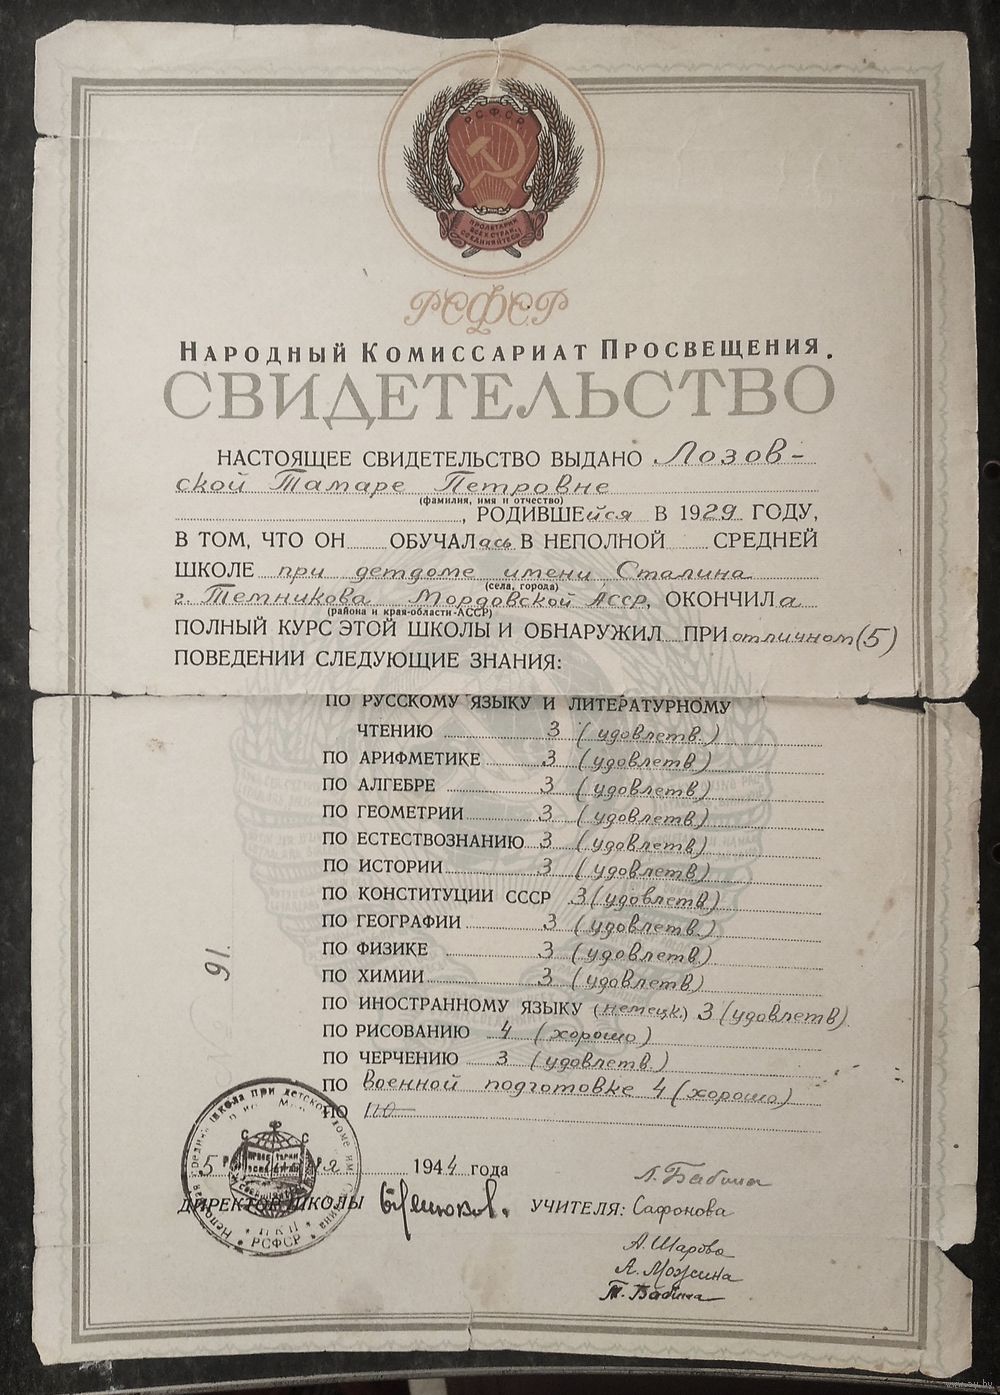 Р.С.Ф.С.Р.
ПРОЛЕТАРИИ
ВСЕХ СТРАН,
СОЕДИНЯЙТЕСЬ!
РСФСР
НАРОДНЫЙ КОМИССАРИАТ ПРОСВЕЩЕНИЯ.
СВИДЕТЕЛЬСТВО
НАСТОЯЩЕЕ СВИДЕТЕЛЬСТВО ВЫДАНО Лозов-
ской Тамаре Петровне
(фамилия, имя и отчество)
, РОДИВШЕйся В 1929 ГОДУ,
В ТОМ, ЧТО ОН ОБУЧАЛась В НЕПОЛНОЙ СРЕДНЕЙ
ШКОЛЕ при детдоме имени Сталина
(села, города)
г. Темникова Мордовской АССР, ОКОНЧИЛа
(района и края-области-АССР)
ПОЛНЫЙ КУРС ЭТОЙ ШКОЛЫ И ОБНАРУЖИЛ ПРИ отличном (5)
ПОВЕДЕНИИ СЛЕДУЮЩИЕ ЗНАНИЯ:
ПО РУССКОМУ ЯЗЫКУ И ЛИТЕРАТУРНОМУ
ЧТЕНИЮ 3 (удовлетв.)
ПО АРИФМЕТИКЕ 3 (удовлетв)
ПО АЛГЕБРЕ 3 (удовлетв)
ПО ГЕОМЕТРИИ 3 (удовлетв)
ПО ЕСТЕСТВОЗНАНИЮ 3 (удовлетв)
ПО ИСТОРИИ 3 (удовлетв)
ПО КОНСТИТУЦИИ СССР 3 (удовлетв)
ПО ГЕОГРАФИИ 3 (удовлетв.)
ПО ФИЗИКЕ 3 (удовлетв)
ПО ХИМИИ 3 (удовлетв)
ПО ИНОСТРАННОМУ ЯЗЫКУ (немецк.) 3 (удовлетв)
ПО РИСОВАНИЮ 4 (хорошо)
ПО ЧЕРЧЕНИЮ 3 (удовлетв.)
ПО Военной подготовке 4 (хорошо)
ПО по
91.
Неполная средняя школа при детском доме им. Сталина
НКП
РСФСР
5 1944 года
ДИРЕКТОР ШКОЛЫ УЧИТЕЛЯ: Л. Бабина
Сафонова
А. Шарова
А. Можина
Т. Бабина
www.ay.by